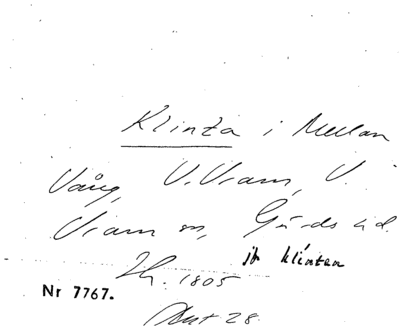 Klinta i Mellan
Vång, V. Vram, V.
Vram sn, Gärds hd.
jb klinten
Nr 7767.
1805
Akt 28